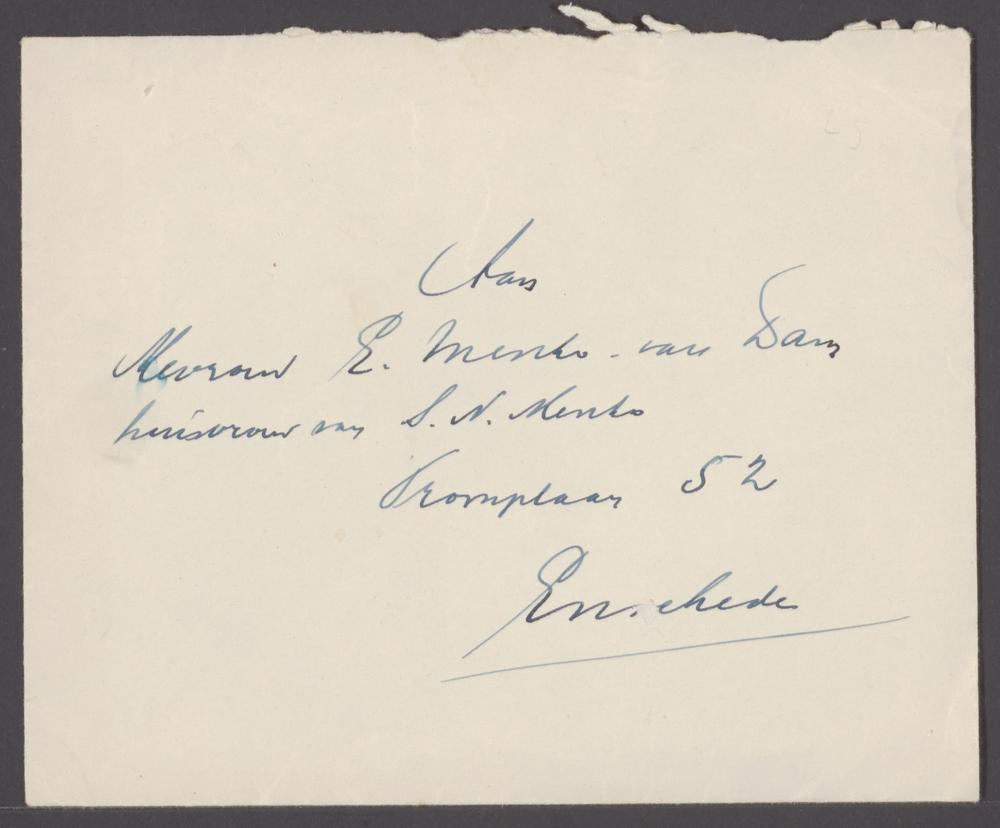 Aan
Mevrouw E. Menko-van Dam
huisvrouw van S. N. Menko
Tromplaan 52
Enschede